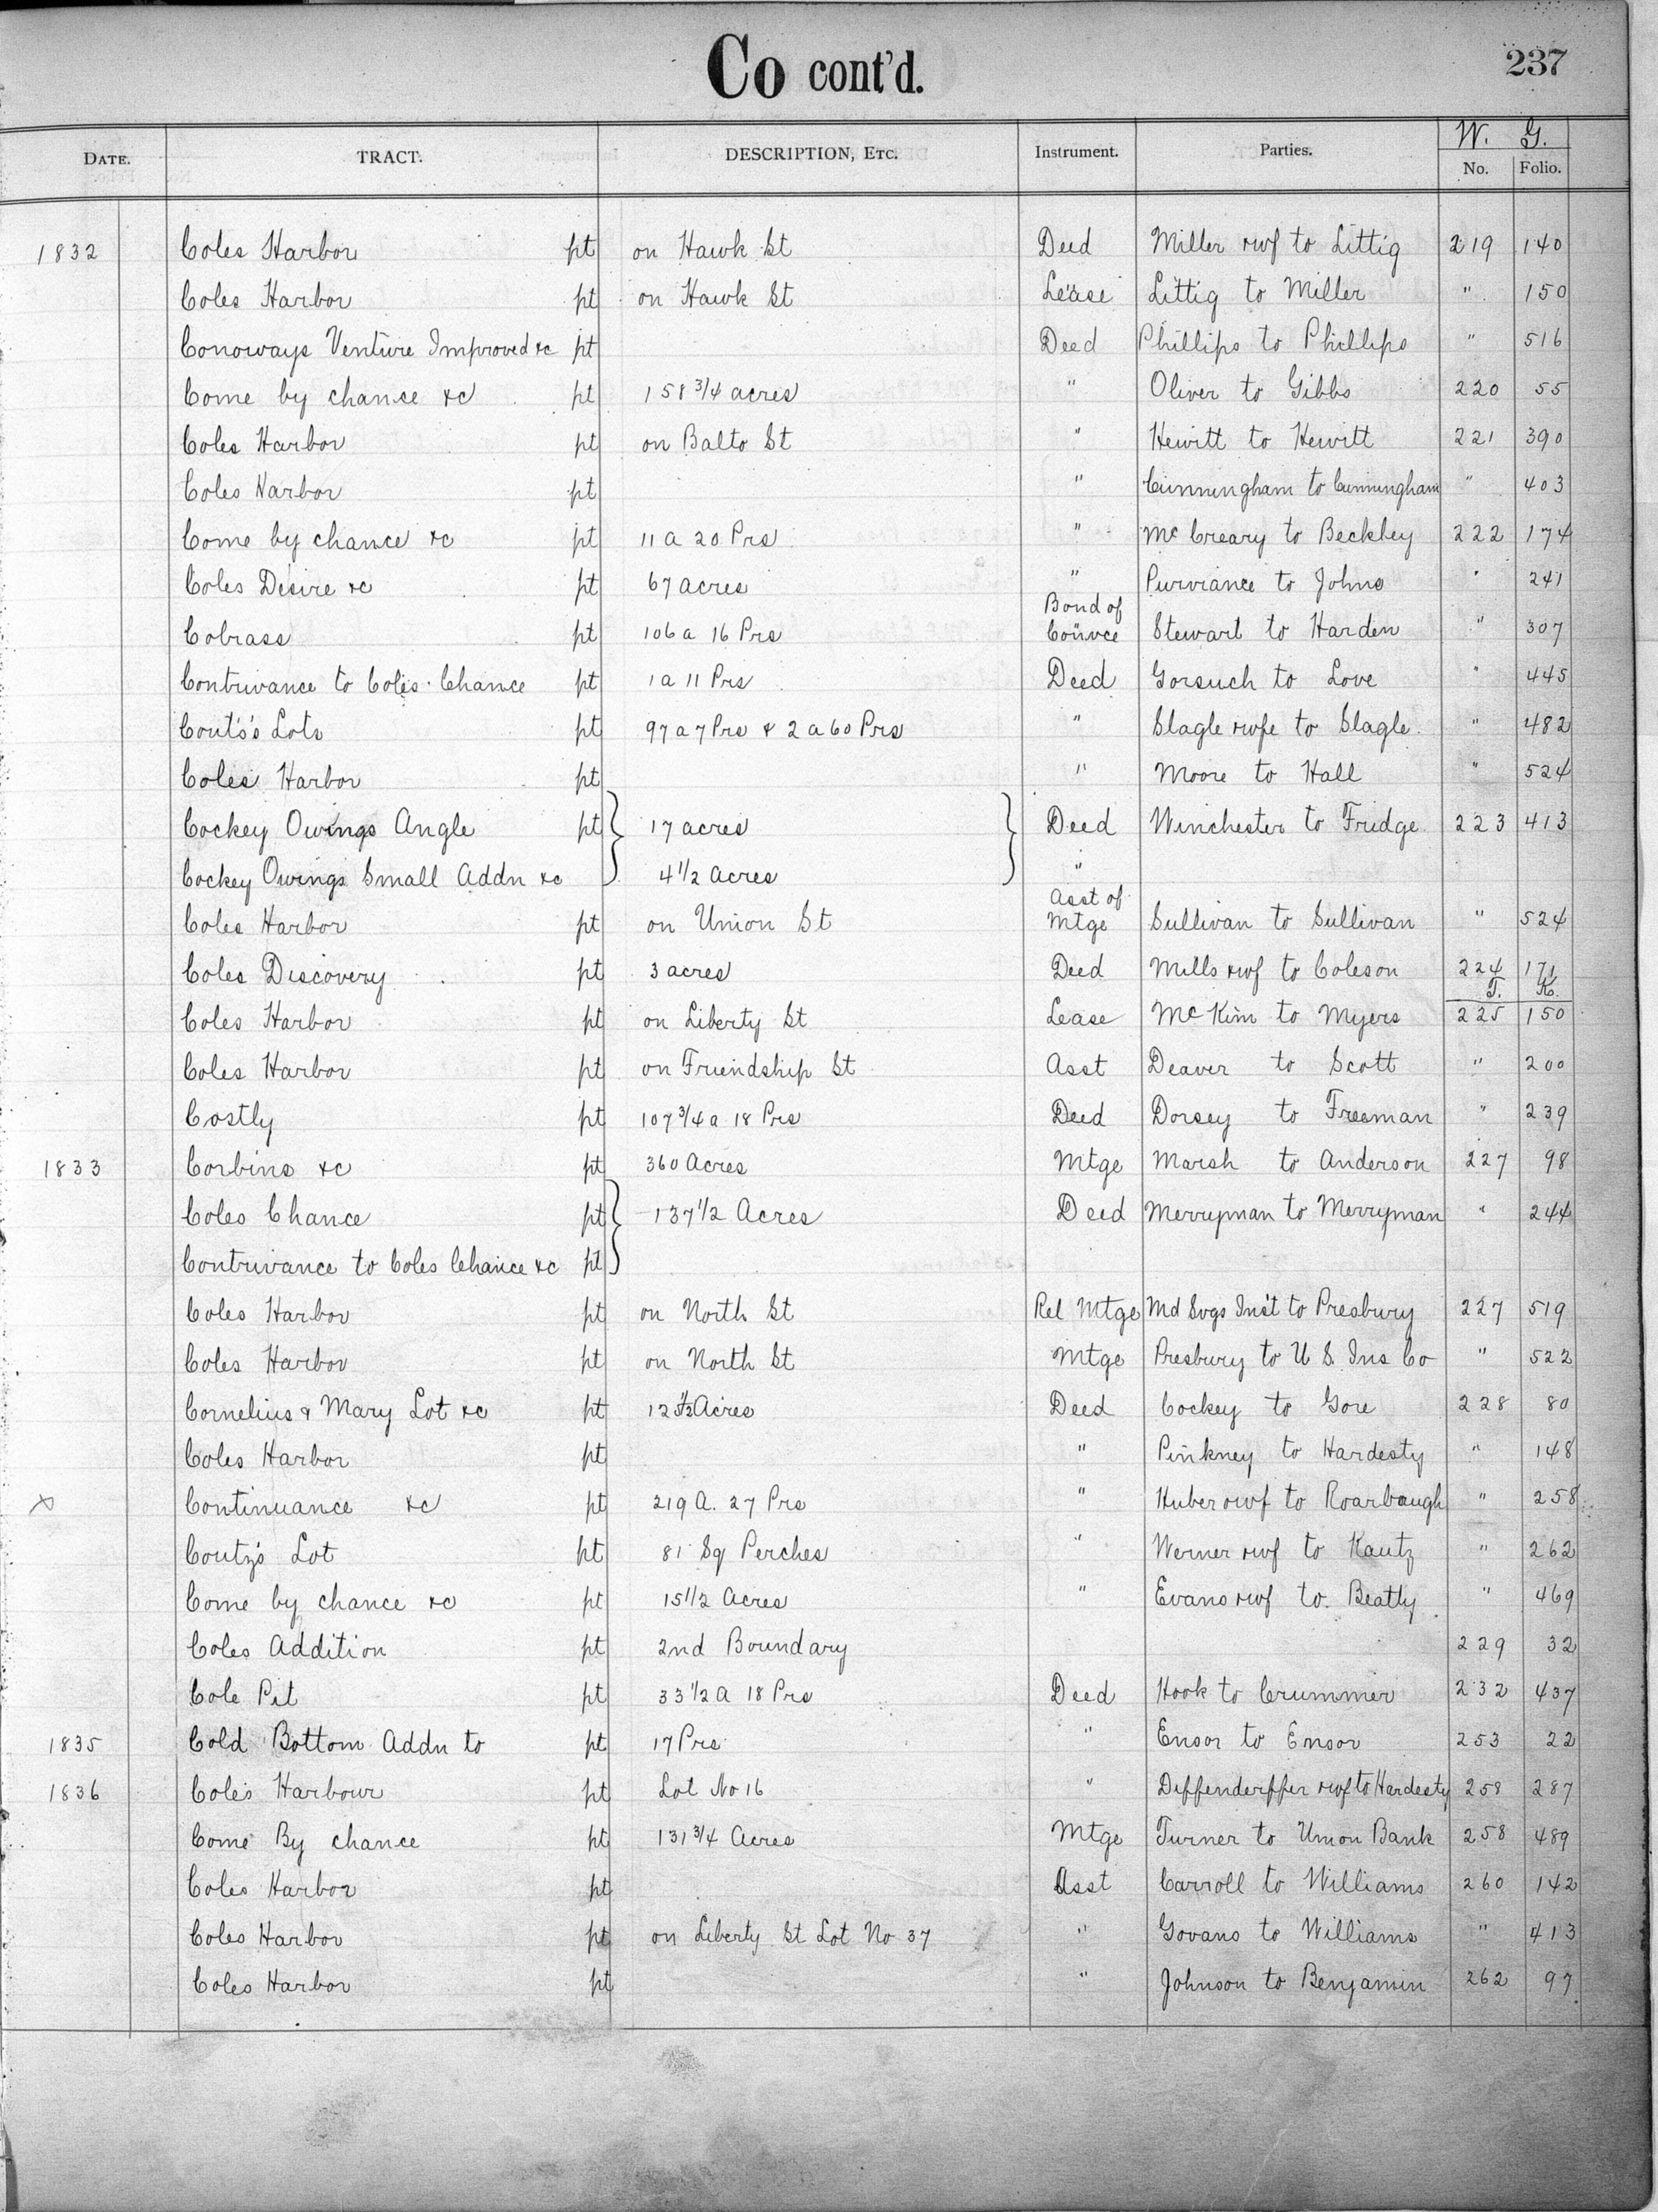 Co cont'd.
237
DATE. TRACT. DESCRIPTION, ETC. Instrument. Parties. W. G.
No. Folio.
1832 Coles Harbor pt on Hawk St Deed Miller &wf to Littig 219 140
Coles Harbor pt on Hawk St Lease Littig to Miller " 150
Conoways Venture Improved &c pt Deed Phillips to Phillips " 516
Come by chance &c pt 158 3/4 acres " Oliver to Gibbs 220 55
Coles Harbor pt on Balto St " Hewitt to Hewitt 221 390
Coles Harbor pt " Cunningham to Cunningham " 403
Come by chance &c pt 11 a 20 Prs " McCreary to Beckley 222 174
Coles Desire &c pt 67 acres " Purviance to Johns " 241
Cobrass pt 106 a 16 Prs Bond of Convce Stewart to Harden " 307
Contrivance to Coles Chance pt 1 a 11 Prs Deed Gorsuch to Love " 445
Couts's Lots pt 97 a 7 Prs & 2 a 60 Prs " Slagle &wfe to Slagle " 482
Coles Harbor pt " Moore to Hall " 524
Cockey Owings Angle pt 17 acres Deed Winchester to Fridge 223 413
Cockey Owings Small Addn &c 4 1/2 Acres "
Coles Harbor pt on Union St Asst of Mtge Sullivan to Sullivan " 524
Coles Discovery pt 3 acres Deed Mills &wf to Coleson 224 171
T. K.
Coles Harbor pt on Liberty St Lease McKim to Myers 225 150
Coles Harbor pt on Friendship St Asst Deaver to Scott " 200
Costly pt 107 3/4 a 18 Prs Deed Dorsey to Freeman " 239
1833 Corbins &c pt 360 Acres Mtge Marsh to Anderson 227 98
Coles Chance pt 137 1/2 Acres Deed Merryman to Merryman " 244
Contrivance to Coles Chance &c pt
Coles Harbor pt on North St Rel Mtge Md Svgs Inst to Presbury 227 519
Coles Harbor pt on North St Mtge Presbury to U S. Ins Co " 522
Cornelius & Mary Lot &c pt 12 1/2 Acres Deed Cockey to Gore 228 80
Coles Harbor pt " Pinkney to Hardesty " 148
x Continuance &c pt 219 A. 27 Prs " Huber &wf to Roarbaugh " 258
Coutz's Lot pt 81 Sq Perches " Werner &wf to Kautz " 262
Come by chance &c pt 15 1/2 Acres " Evans &wf to Beatty " 469
Coles Addition pt 2nd Boundary 229 32
Cole Pit pt 33 1/2 A 18 Prs Deed Hook to Crummer 232 437
1835 Cold Bottom Addn to pt 17 Prs " Ensor to Ensor 253 22
1836 Coles Harbour pt Lot No 16 " Diffenderffer &wf to Hardesty 258 287
Come By chance pt 131 3/4 Acres Mtge Turner to Union Bank 258 489
Coles Harbor pt Asst Carroll to Williams 260 142
Coles Harbor pt on Liberty St Lot No 37 " Govans to Williams " 413
Coles Harbor pt " Johnson to Benjamin 262 97